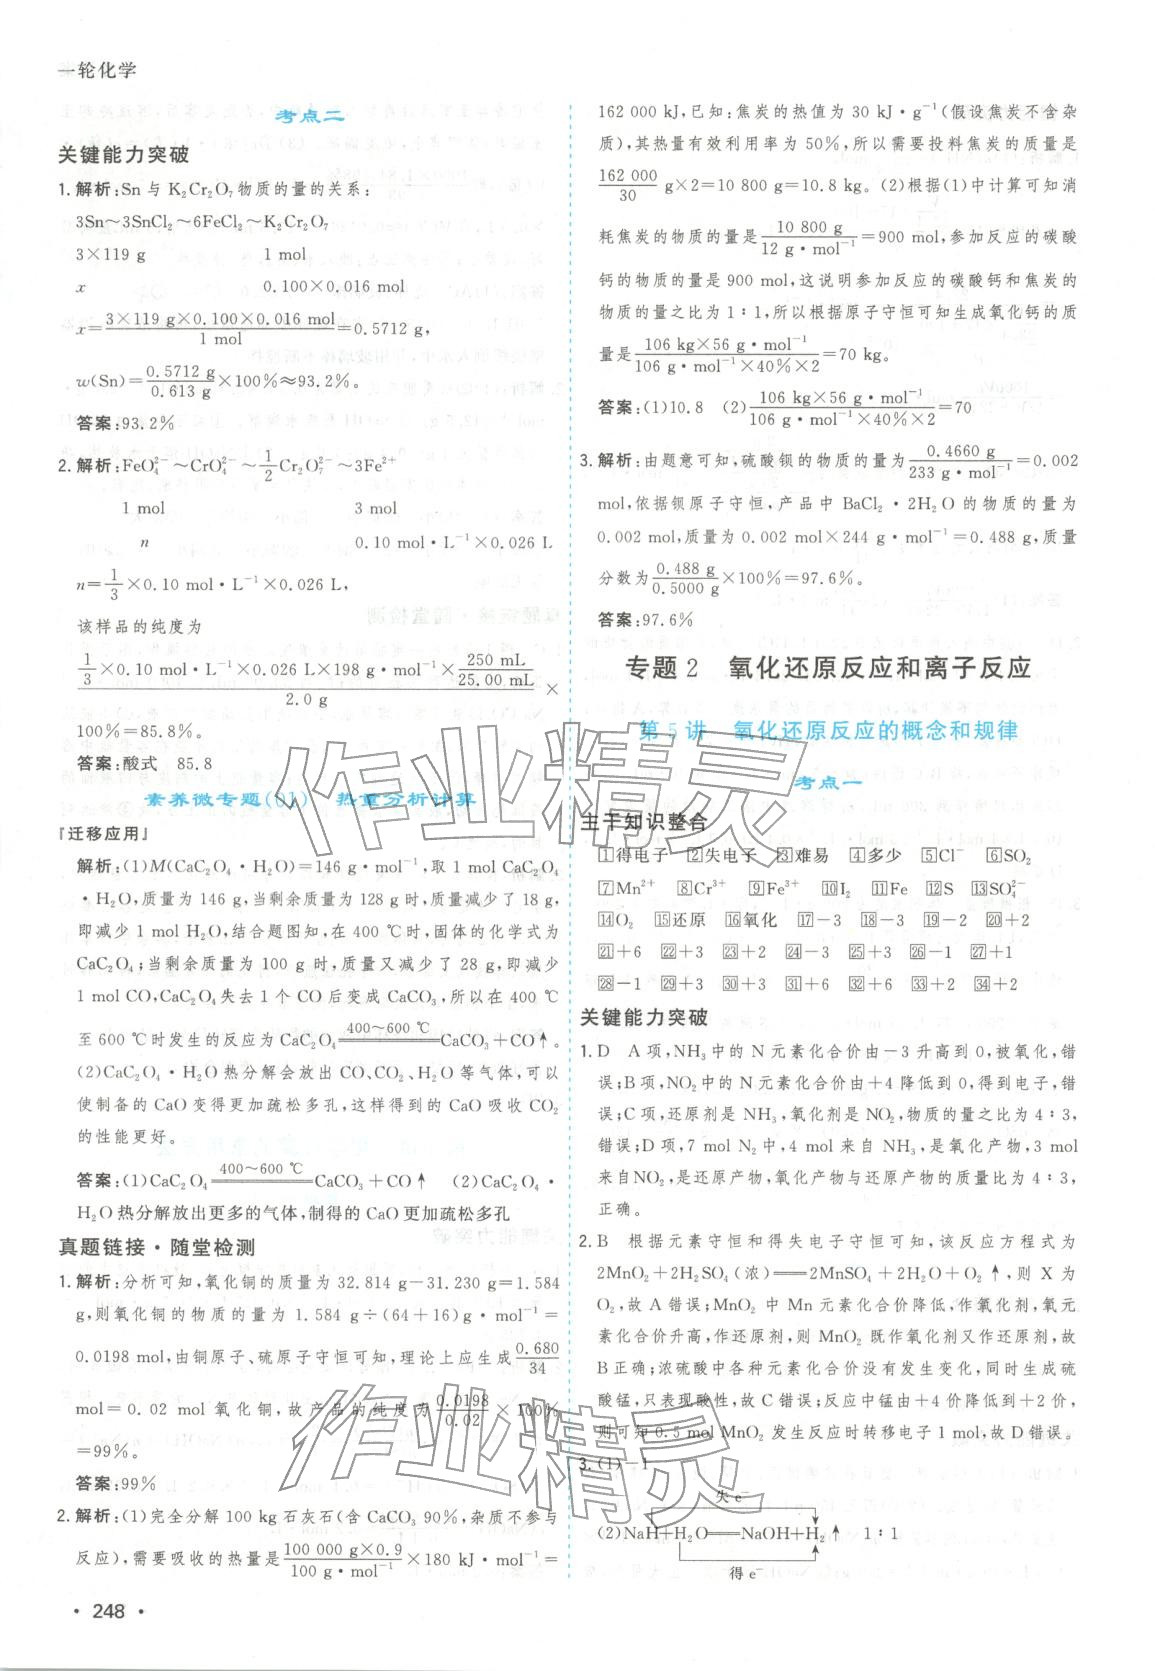 一轮化学
考点二
关键能力突破
1. 解析:Sn 与 K₂Cr₂O₇ 物质的量的关系:
3Sn～3SnCl₂～6FeCl₂～K₂Cr₂O₇
3×119 g 1 mol
x 0.100×0.016 mol
x=(3×119 g×0.100×0.016 mol)/(1 mol)=0.5712 g,
w(Sn)=(0.5712 g)/(0.613 g)×100%≈93.2%。
答案:93.2%
2. 解析:FeO₄²⁻～CrO₄²⁻～1/2 Cr₂O₇²⁻～3Fe²⁺
1 mol 3 mol
n 0.10 mol·L⁻¹×0.026 L
n=1/3×0.10 mol·L⁻¹×0.026 L,
该样品的纯度为
(1/3×0.10 mol·L⁻¹×0.026 L×198 g·mol⁻¹×(250 mL)/(25.00 mL))/(2.0 g)×
100%=85.8%。
答案:酸式 85.8
素养微专题(01) 热重分析计算
『迁移应用』
解析:(1)M(CaC₂O₄·H₂O)=146 g·mol⁻¹,取 1 mol CaC₂O₄
·H₂O,质量为 146 g,当剩余质量为 128 g 时,质量减少了 18 g,
即减少 1 mol H₂O,结合题图知,在 400 ℃时,固体的化学式为
CaC₂O₄;当剩余质量为 100 g 时,质量又减少了 28 g,即减少
1 mol CO,CaC₂O₄ 失去 1 个 CO 后变成 CaCO₃,所以在 400 ℃
至 600 ℃时发生的反应为 CaC₂O₄ =(400～600 ℃)= CaCO₃+CO↑。
(2)CaC₂O₄·H₂O 热分解会放出 CO、CO₂、H₂O 等气体,可以
使制备的 CaO 变得更加疏松多孔,这样得到的 CaO 吸收 CO₂
的性能更好。
答案:(1)CaC₂O₄ =(400～600 ℃)= CaCO₃+CO↑ (2)CaC₂O₄·
H₂O 热分解放出更多的气体,制得的 CaO 更加疏松多孔
真题链接·随堂检测
1. 解析:分析可知,氧化铜的质量为 32.814 g-31.230 g=1.584
g,则氧化铜的物质的量为 1.584 g÷(64+16)g·mol⁻¹=
0.0198 mol,由铜原子、硫原子守恒可知,理论上应生成 0.680/34
mol=0.02 mol 氧化铜,故产品的纯度为 0.0198/0.02×100%
=99%。
答案:99%
2. 解析:(1)完全分解 100 kg 石灰石(含 CaCO₃ 90%,杂质不参与
反应),需要吸收的热量是 (100 000 g×0.9)/(100 g·mol⁻¹)×180 kJ·mol⁻¹=
162 000 kJ,已知:焦炭的热值为 30 kJ·g⁻¹(假设焦炭不含杂
质),其热量有效利用率为 50%,所以需要投料焦炭的质量是
162 000/30 g×2=10 800 g=10.8 kg。(2)根据(1)中计算可知消
耗焦炭的物质的量是 (10 800 g)/(12 g·mol⁻¹)=900 mol,参加反应的碳酸
钙的物质的量是 900 mol,这说明参加反应的碳酸钙和焦炭的
物质的量之比为 1∶1,所以根据原子守恒可知生成氧化钙的质
量是 (106 kg×56 g·mol⁻¹)/(106 g·mol⁻¹×40%×2)=70 kg。
答案:(1)10.8 (2)(106 kg×56 g·mol⁻¹)/(106 g·mol⁻¹×40%×2)=70
3. 解析:由题意可知,硫酸钡的物质的量为 (0.4660 g)/(233 g·mol⁻¹)=0.002
mol,依据钡原子守恒,产品中 BaCl₂·2H₂O 的物质的量为
0.002 mol,质量为 0.002 mol×244 g·mol⁻¹=0.488 g,质量
分数为 (0.488 g)/(0.5000 g)×100%=97.6%。
答案:97.6%
专题 2 氧化还原反应和离子反应
第 5 讲 氧化还原反应的概念和规律
考点一
主干知识整合
1得电子 2失电子 3难易 4多少 5Cl⁻ 6SO₂
7Mn²⁺ 8Cr³⁺ 9Fe³⁺ 10I₂ 11Fe 12S 13SO₄²⁻
14O₂ 15还原 16氧化 17-3 18-3 19-2 20+2
21+6 22+3 23+2 24-3 25+3 26-1 27+1
28-1 29+3 30+3 31+6 32+6 33+2 34+1
关键能力突破
1. D A 项,NH₃ 中的 N 元素化合价由-3 升高到 0,被氧化,错
误;B 项,NO₂ 中的 N 元素化合价由+4 降低到 0,得到电子,错
误;C 项,还原剂是 NH₃,氧化剂是 NO₂,物质的量之比为 4∶3,
错误;D 项,7 mol N₂ 中,4 mol 来自 NH₃,是氧化产物,3 mol
来自 NO₂,是还原产物,氧化产物与还原产物的质量比为 4∶3,
正确。
2. B 根据元素守恒和得失电子守恒可知,该反应方程式为
2MnO₂+2H₂SO₄(浓)══2MnSO₄+2H₂O+O₂↑,则 X 为
O₂,故 A 错误;MnO₂ 中 Mn 元素化合价降低,作氧化剂,氧元
素化合价升高,作还原剂,则 MnO₂ 既作氧化剂又作还原剂,故
B 正确;浓硫酸中各种元素化合价没有发生变化,同时生成硫
酸锰,只表现酸性,故 C 错误;反应中锰由+4 价降低到+2 价,
则可知 0.5 mol MnO₂ 发生反应时转移电子 1 mol,故 D 错误。
3. (1)-1
失 e⁻
(2)NaH+H₂O══NaOH+H₂↑ 1∶1
得 e⁻
· 248 ·
作业精灵
作业精灵